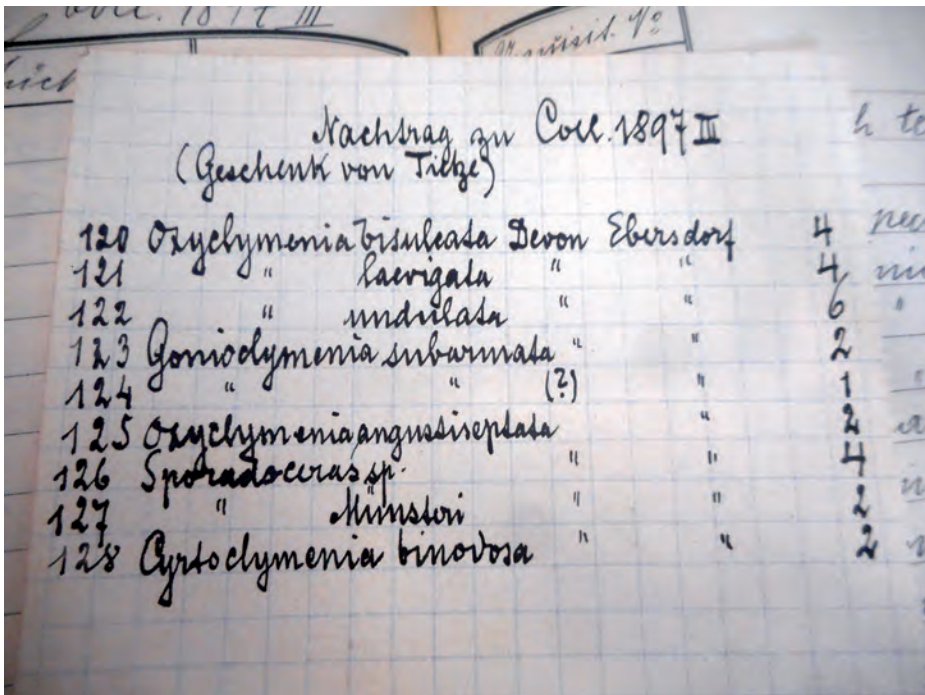 Coll. 1897 III
Acquisit. No
Nachtrag zu Coll. 1897 III
(Geschenk von Tietze)
120 Oxyclymenia bisulcata Devon Ebersdorf 4
121 " laevigata " " 4
122 " undulata " " 6
123 Gonioclymenia subarmata " " 2
124 " " (?) " 1
125 Oxyclymenia angustiseptata " 2
126 Sporadoceras sp. " " 4
127 " Münsteri " " 2
128 Cyrtoclymenia binodosa " " 2